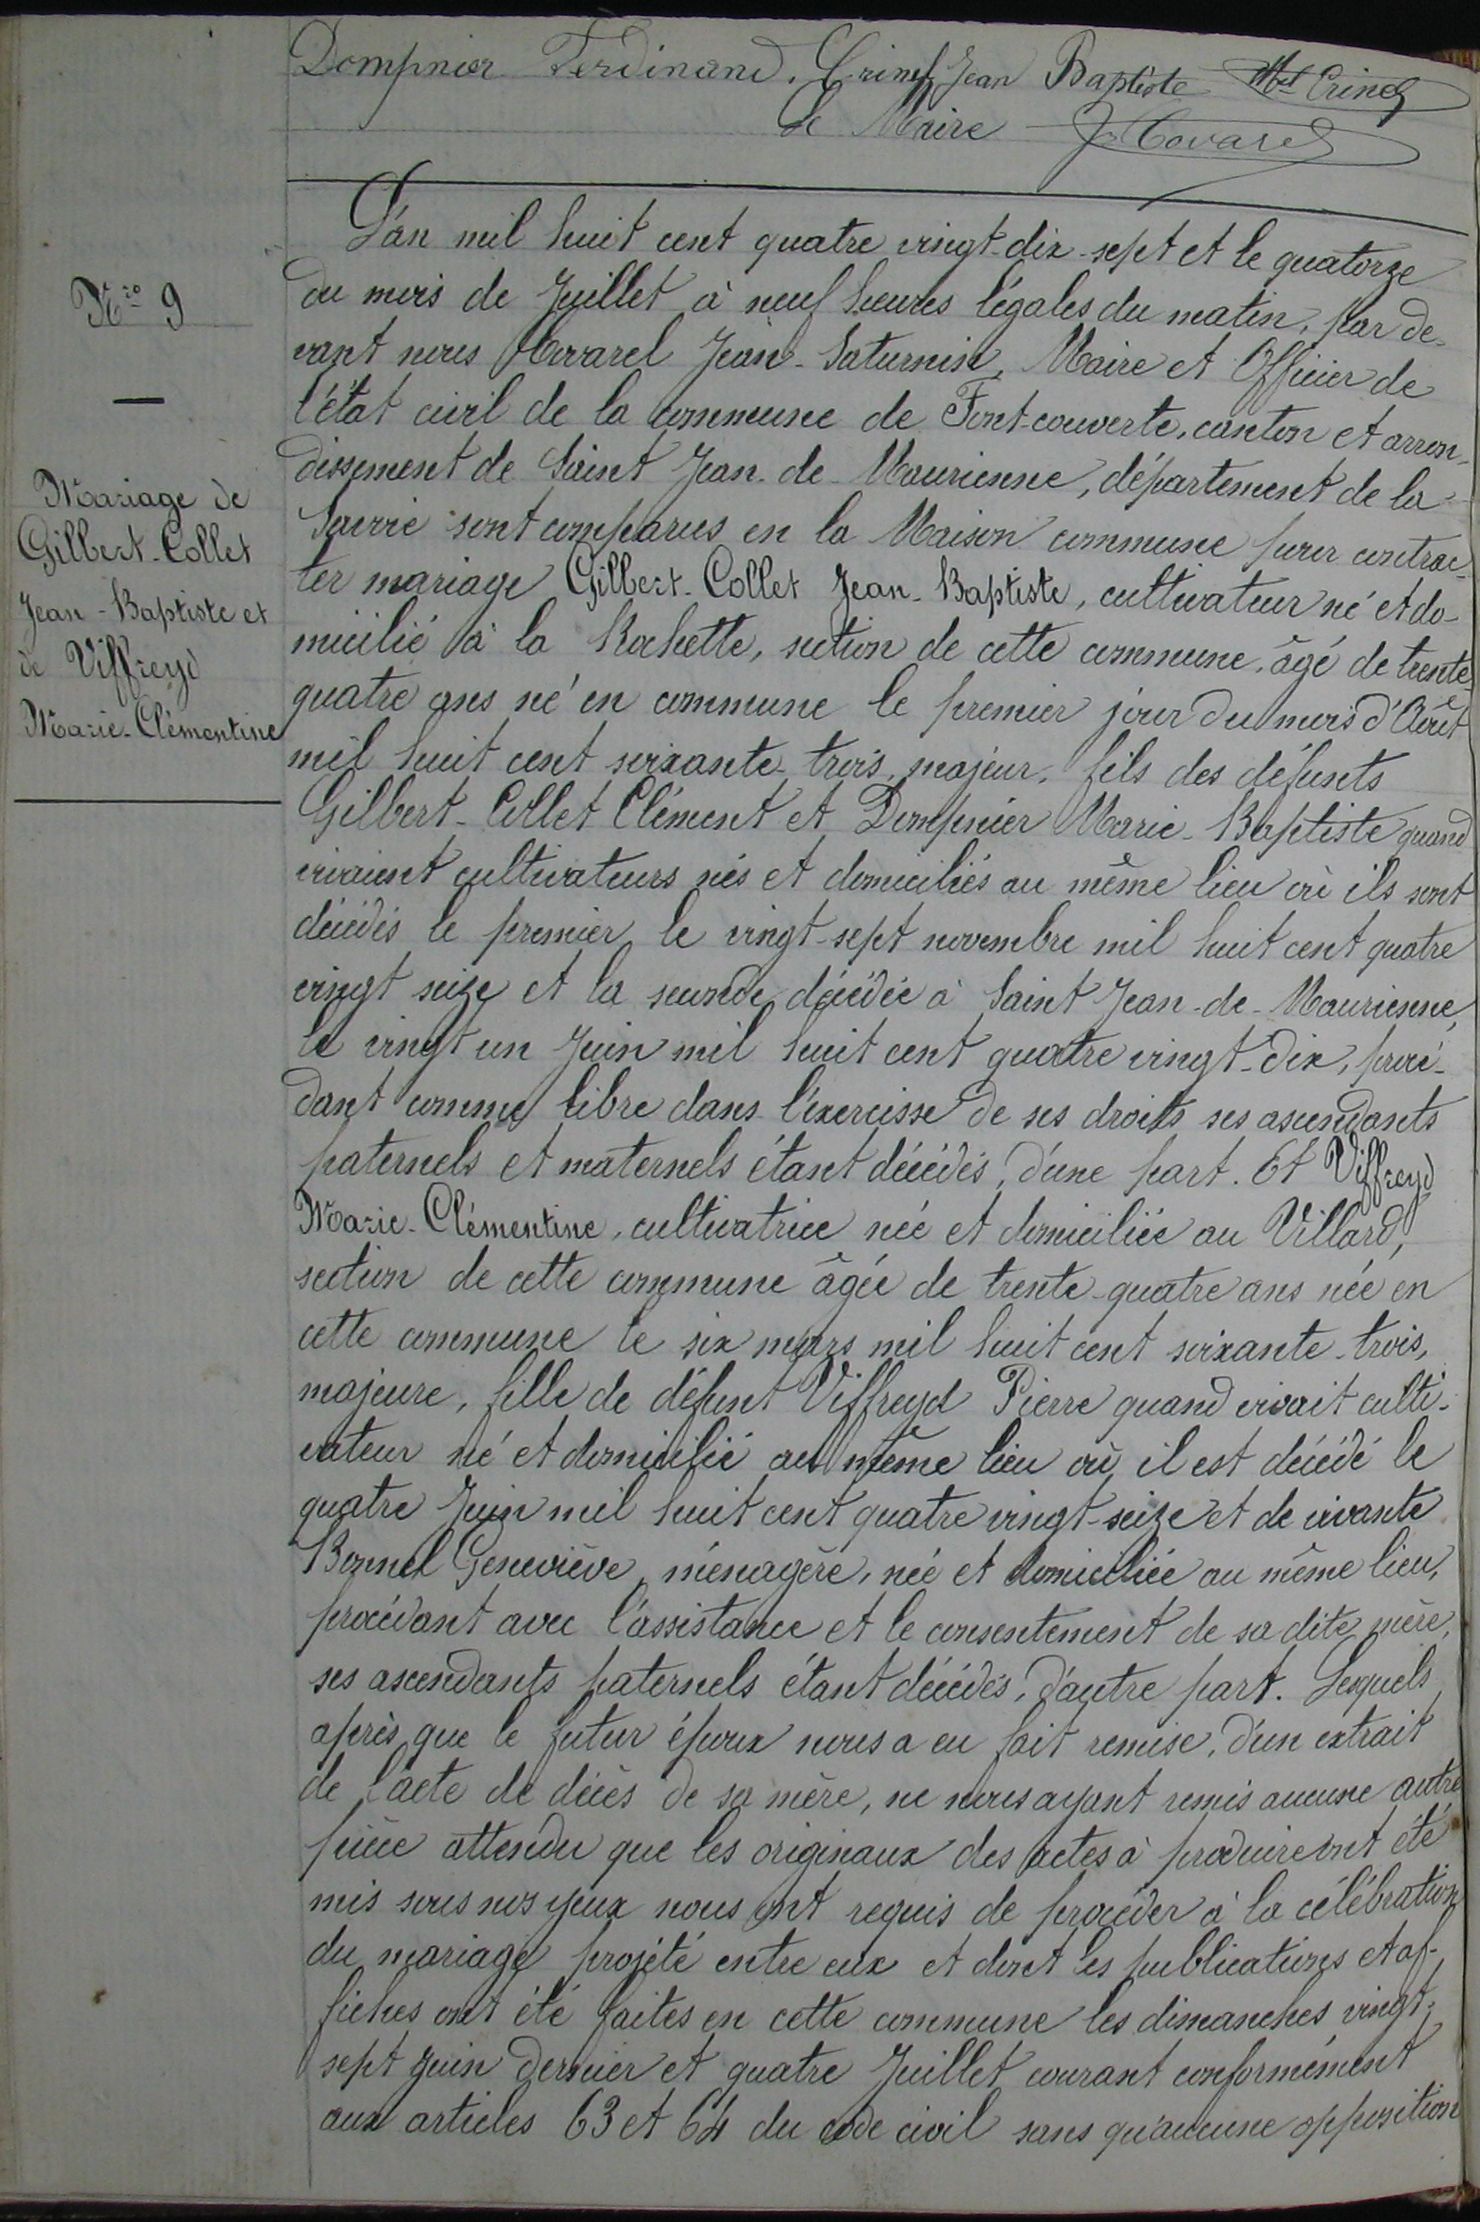 Dompnier Ferdinand. Crinel Jean Baptiste Mel Crinel
Le Maire J Covarel
Nro 9
Mariage de
Gilbert-Collet
Jean-Baptiste et
de Viffreyd
Marie-Clémentine
L'an mil huit cent quatre vingt-dix-sept et le quatorze
du mois de Juillet à neuf heures légales du matin, par de-
vant nous Covarel Jean-Saturnin, Maire et Officier de
l'état civil de la commune de Font-couverte, canton et arron-
dissement de Saint Jean-de-Maurienne, département de la
Savoie sont comparus en la Maison commune pour contrac-
ter mariage Gilbert-Collet Jean-Baptiste, cultivateur né et do-
micilié à la Rochette, section de cette commune, âgé de trente-
quatre ans né en commune le premier jour du mois d'Août
mil huit cent soixante-trois, majeur, fils des défunts
Gilbert-Collet Clément et Dompnier Marie-Baptiste quand
vivaient cultivateurs nés et domiciliés au même lieu où ils sont
décédés le premier le vingt-sept novembre mil huit cent quatre
vingt seize et la seconde décédée à Saint Jean-de-Maurienne,
le vingt un Juin mil huit cent quatre vingt-dix, procé-
dant comme libre dans l'exercisse de ses droits ses ascendants
paternels et maternels étant décédés, d'une part. Et Viffreyd
Marie-Clémentine, cultivatrice née et domiciliée au Villard,
section de cette commune âgée de trente-quatre ans née en
cette commune le six mars mil huit cent soixante-trois,
majeure, fille de défunt Viffreyd Pierre quand vivait culti-
vateur né et domicilié au même lieu où il est décédé le
quatre Juin mil huit cent quatre vingt-seize et de vivante
Bonnel Geneviève, ménagère, née et domiciliée au même lieu,
procédant avec l'assistance et le consentement de sa dite mère,
ses ascendants paternels étant décédés, d'autre part. Lesquels
après que le futur époux nous a eu fait remise, d'un extrait
de l'acte de décès de sa mère, ne nous ayant remis aucune autre
pièce attendu que les originaux des actes à produire ont été
mis sous nos yeux nous ont requis de procéder à la célébration
du mariage projété entre eux et dont les publications et af-
fiches ont été faites en cette commune les dimanches vingt-
sept juin dernier et quatre Juillet courant conformément
aux articles 63 et 64 du code civil sans qu'aucune opposition